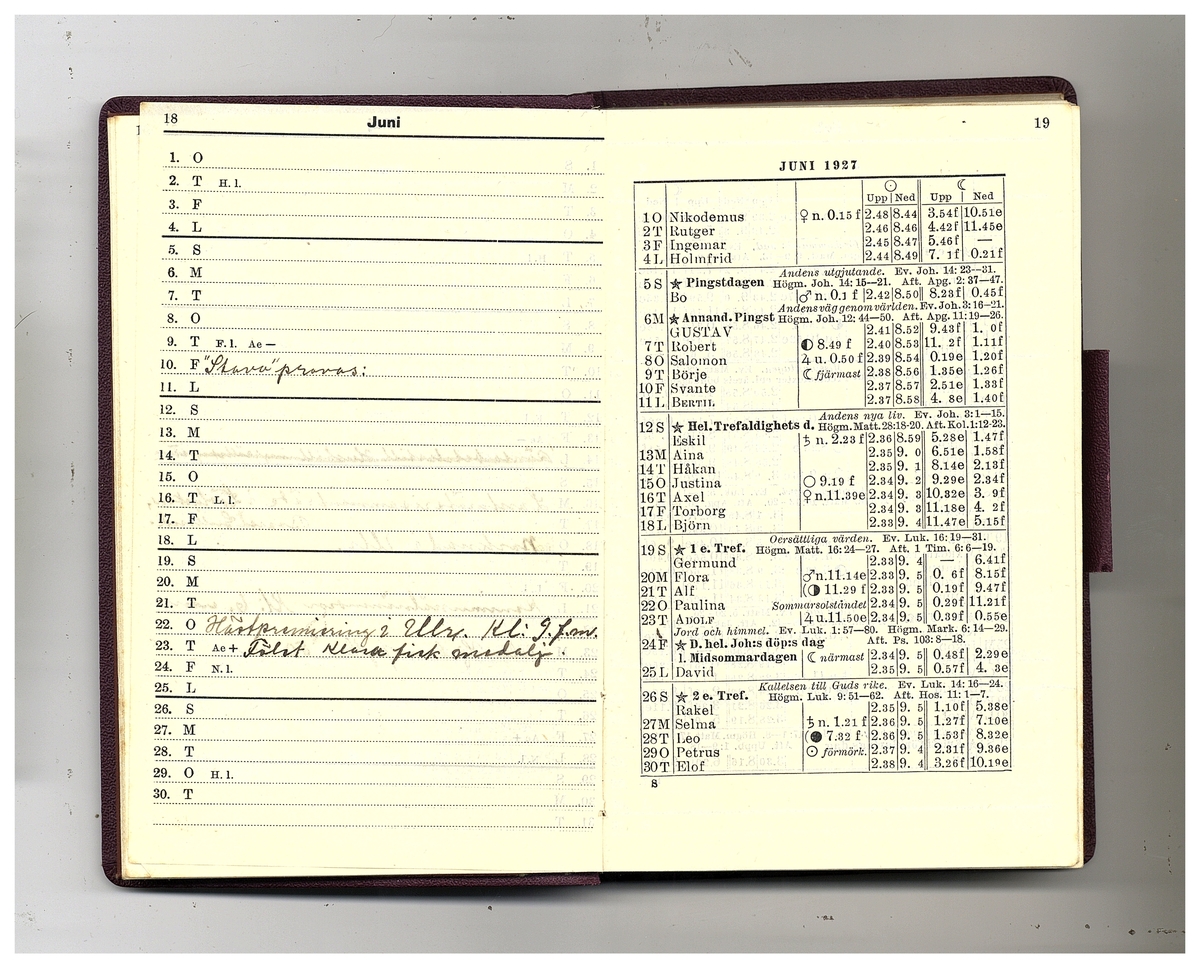 18
Juni
1. O
2. T H. l.
3. F
4. L
5. S
6. M
7. T
8. O
9. T F. l. Ae —
10. F "Stava" provas:
11. L
12. S
13. M
14. T
15. O
16. T L. l.
17. F
18. L
19. S
20. M
21. T
22. O Hästpremiering i Ulbr. Kl: 9. f.m.
23. T Ae + Fölst Klara fick medalj.
24. F N. l.
25. L
26. S
27. M
28. T
29. O H. l.
30. T
19
JUNI 1927
☉ ☾
Upp Ned Upp Ned
1 O Nikodemus ♀ n. 0.15 f 2.48 8.44 3.54f 10.51e
2 T Rutger 2.46 8.46 4.42f 11.45e
3 F Ingemar 2.45 8.47 5.46f —
4 L Holmfrid 2.44 8.49 7. 1f 0.21f
Andens utgjutande. Ev. Joh. 14: 23—31.
5 S ★ Pingstdagen Högm. Joh. 14: 15—21. Aft. Apg. 2: 37—47.
Bo ♂ n. 0.1 f 2.42 8.50 8.23f 0.45f
Andens väg genom världen. Ev. Joh. 3: 16—21.
6 M ★ Annand. Pingst Högm. Joh. 12: 44—50. Aft. Apg. 11: 19—26.
GUSTAV 2.41 8.52 9.43f 1. 0f
7 T Robert ◐ 8.49 f 2.40 8.53 11. 2f 1.11f
8 O Salomon ♃ u. 0.50 f 2.39 8.54 0.19e 1.20f
9 T Börje ☾ fjärmast 2.38 8.56 1.35e 1.26f
10 F Svante 2.37 8.57 2.51e 1.33f
11 L BERTIL 2.37 8.58 4. 8e 1.40f
Andens nya liv. Ev. Joh. 3: 1—15.
12 S ★ Hel. Trefaldighets d. Högm. Matt. 28:18-20. Aft. Kol. 1:12-23.
Eskil ♄ n. 2.23 f 2.36 8.59 5.28e 1.47f
13 M Aina 2.35 9. 0 6.51e 1.58f
14 T Håkan 2.35 9. 1 8.14e 2.13f
15 O Justina ○ 9.19 f 2.34 9. 2 9.29e 2.34f
16 T Axel ♀ n. 11.39e 2.34 9. 3 10.32e 3. 9f
17 F Torborg 2.34 9. 3 11.18e 4. 2f
18 L Björn 2.33 9. 4 11.47e 5.15f
Oersättliga värden. Ev. Luk. 16: 19—31.
19 S ★ 1 e. Tref. Högm. Matt. 16: 24—27. Aft. 1 Tim. 6: 6—19.
Germund 2.33 9. 4 — 6.41f
20 M Flora ♂ n. 11.14e 2.33 9. 5 0. 6f 8.15f
21 T Alf (◑ 11.29 f 2.33 9. 5 0.19f 9.47f
22 O Paulina Sommarsolståndet 2.34 9. 5 0.29f 11.21f
23 T ADOLF ♃ u. 11.50e 2.34 9. 5 0.39f 0.55e
Jord och himmel. Ev. Luk. 1: 57—80. Högm. Mark. 6: 14—29.
24 F ★ D. hel. Joh:s döp:s dag Aft. Ps. 103: 8—18.
l. Midsommardagen ☾ närmast 2.34 9. 5 0.48f 2.29e
25 L David 2.35 9. 5 0.57f 4. 3e
Kallelsen till Guds rike. Ev. Luk. 14: 16—24.
26 S ★ 2 e. Tref. Högm. Luk. 9: 51—62. Aft. Hos. 11: 1—7.
Rakel 2.35 9. 5 1.10f 5.38e
27 M Selma ♄ n. 1.21 f 2.36 9. 5 1.27f 7.10e
28 T Leo (● 7.32 f 2.36 9. 5 1.53f 8.32e
29 O Petrus ☉ förmörk. 2.37 9. 4 2.31f 9.36e
30 T Elof 2.38 9. 4 3.26f 10.19e
8